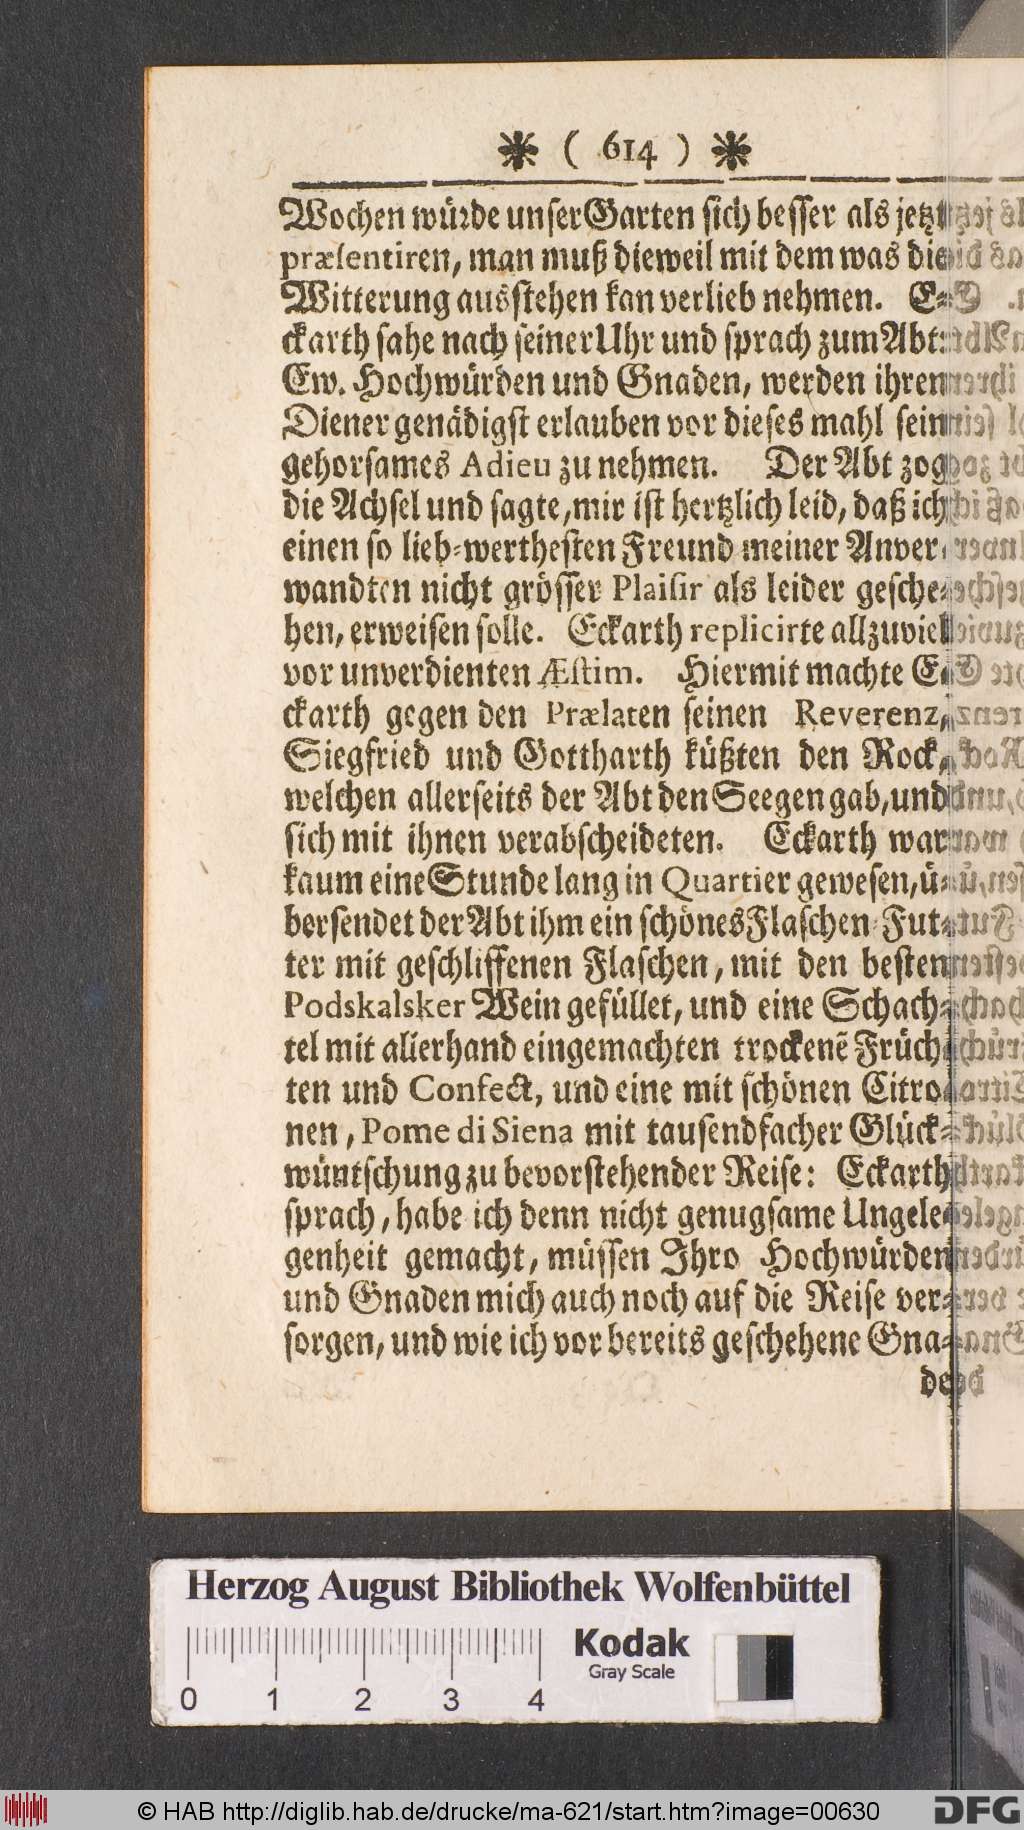 ❋ ( 614 ) ❋
Wochen würde unser Garten sich besser als jetzt
præsentiren, man muß dieweil mit dem was die
Witterung ausstehen kan verlieb nehmen. E-
ckarth sahe nach seiner Uhr und sprach zum Abt:
Ew. Hochwürden und Gnaden, werden ihren
Diener genädigst erlauben vor dieses mahl sein
gehorsames Adieu zu nehmen. Der Abt zog
die Achsel und sagte, mir ist hertzlich leid, daß ich
einen so lieb-werthesten Freund meiner Anver-
wandten nicht grösser Plaisir als leider gesche-
hen, erweisen solle. Eckarth replicirte allzuviel
vor unverdienten Æstim. Hiermit machte E-
ckarth gegen den Prælaten seinen Reverenz,
Siegfried und Gottharth küßten den Rock,
welchen allerseits der Abt den Seegen gab, und
sich mit ihnen verabscheideten. Eckarth war
kaum eine Stunde lang in Quartier gewesen, ü-
bersendet der Abt ihm ein schönes Flaschen-Fut-
ter mit geschliffenen Flaschen, mit den besten
Podskalsker Wein gefüllet, und eine Schach-
tel mit allerhand eingemachten trockenẽ Früch-
ten und Confect, und eine mit schönen Citro-
nen, Pome di Siena mit tausendfacher Glück-
wüntschung zu bevorstehender Reise: Eckarth
sprach, habe ich denn nicht genugsame Ungele-
genheit gemacht, müssen Ihro Hochwürden
und Gnaden mich auch noch auf die Reise ver-
sorgen, und wie ich vor bereits geschehene Gna-
Herzog August Bibliothek Wolfenbüttel
Kodak
Gray Scale
0 1 2 3 4
© HAB http://diglib.hab.de/drucke/ma-621/start.htm?image=00630
DFG